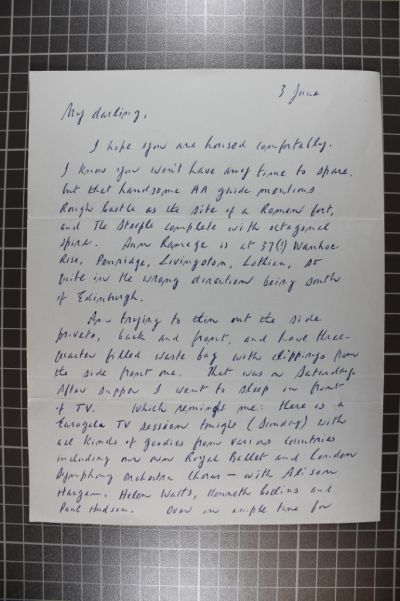 3 June
My darling,
I hope you are housed comfortably.
I know you won't have any time to spare,
but that handsome AA guide mentions
Rough Castle as the site of a Roman fort,
and The Steeple complete with octagonal
spire. Ann Ramage is at 37(?) Ivanhoe
Rise, Pentridge, Livingston, Lothian, so
quite in the wrong direction being south
of Edinburgh.
Am trying to thin out the side
privets, back and front, and have three-
quarter filled waste bag with clippings from
the side front one. That was on Saturday.
After supper I went to sleep in front
of TV. Which reminds me: there is a
Eurogala TV session tonight (Sunday) with
all kinds of goodies from various countries
including our own Royal Ballet and London
Symphony Orchestra Chorus — with Alison
Hargan, Helen Watts, Kenneth Collins and
Paul Hudson. Over in ample time for